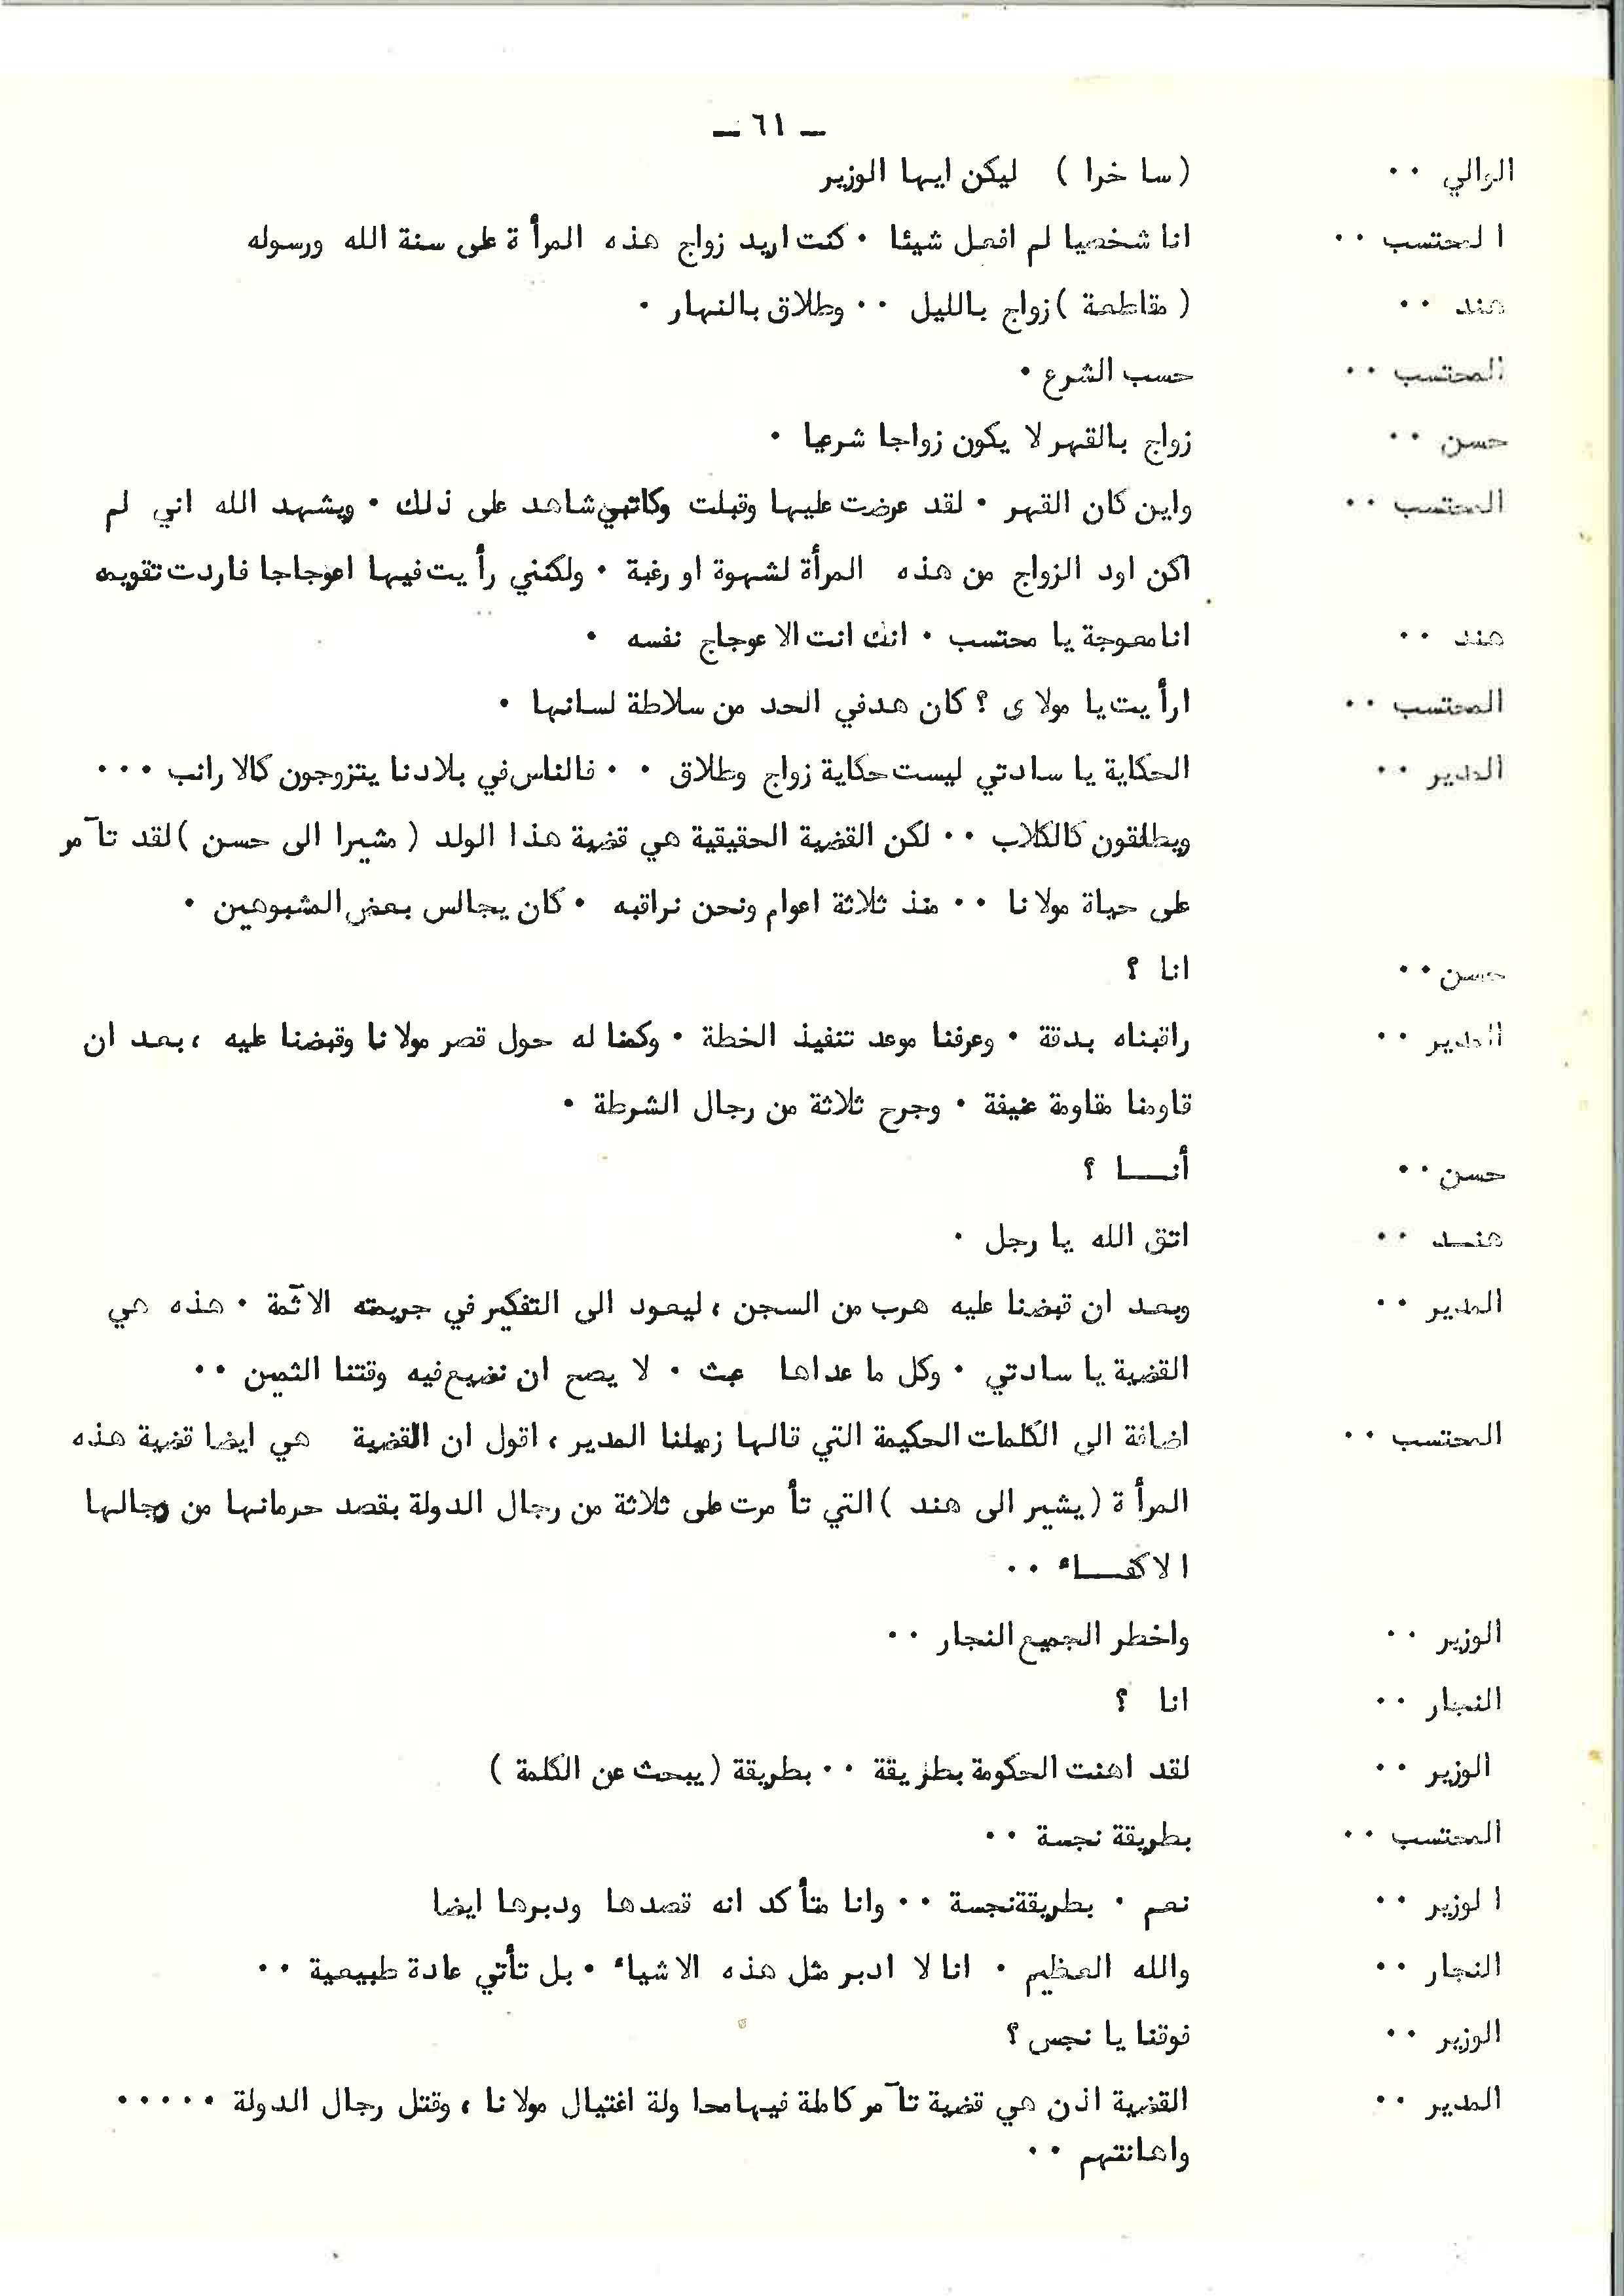 — ٦١ —
الوالي ٠٠ (ساخرا) ليكن ايها الوزير
المحتسب ٠٠ انا شخصيا لم افعل شيئا ٠ كنت اريد زواج هذه المرأة على سنة الله ورسوله
هند ٠٠ (مقاطعة) زواج بالليل ٠٠ وطلاق بالنهار ٠
المحتسب ٠٠ حسب الشرع ٠
حسن ٠٠ زواج بالقهر لا يكون زواجا شرعيا ٠
المحتسب ٠٠ واين كان القهر ٠ لقد عرضت عليها وقبلت وكاتبي شاهد على ذلك ٠ ويشهد الله اني لم
اكن اود الزواج من هذه المرأة لشهوة او رغبة ٠ ولكنني رأيت فيها اعوجاجا فاردت تقويمه
هند ٠٠ انا معوجة يا محتسب ٠ انك انت الاعوجاج نفسه ٠
المحتسب ٠٠ ارأيت يا مولاى ؟ كان هدفي الحد من سلاطة لسانها ٠
المدير ٠٠ الحكاية يا سادتي ليست حكاية زواج وطلاق ٠٠ فالناس في بلادنا يتزوجون كالارانب ٠٠٠
ويطلقون كالكلاب ٠٠ لكن القضية الحقيقية هي قضية هذا الولد (مشيرا الى حسن) لقد تآمر
على حياة مولانا ٠٠ منذ ثلاثة اعوام ونحن نراقبه ٠ كان يجالس بعض المشبوهين ٠
حسن ٠٠ انا ؟
المدير ٠٠ راقبناه بدقة ٠ وعرفنا موعد تنفيذ الخطة ٠ وكمنا له حول قصر مولانا وقبضنا عليه ، بعد ان
قاومنا مقاومة عنيفة ٠ وجرح ثلاثة من رجال الشرطة ٠
حسن ٠٠ أنـــا ؟
هنــد ٠٠ اتق الله يا رجل ٠
المدير ٠٠ وبعد ان قبضنا عليه هرب من السجن ، ليعود الى التفكير في جريمته الآثمة ٠ هذه هي
القضية يا سادتي ٠ وكل ما عداها عبث ٠ لا يصح ان نضيع فيه وقتنا الثمين ٠٠
المحتسب ٠٠ اضافة الى الكلمات الحكيمة التي قالها زميلنا المدير ، اقول ان القضية هي ايضا قضية هذه
المرأة (يشير الى هند) التي تأمرت على ثلاثة من رجال الدولة بقصد حرمانها من رجالها
الاكفــاء ٠٠
الوزير ٠٠ واخطر الجميع النجار ٠٠
النجار ٠٠ انا ؟
الوزير ٠٠ لقد اهنت الحكومة بطريقة ٠٠ بطريقة (يبحث عن الكلمة)
المحتسب ٠٠ بطريقة نجسة ٠٠
الوزير ٠٠ نعم ٠ بطريقة نجسة ٠٠ وانا متأكد انه قصدها ودبرها ايضا
النجار ٠٠ والله العظيم ٠ انا لا ادبر مثل هذه الاشياء ٠ بل تأتي عادة طبيعية ٠٠
الوزير ٠٠ فوقنا يا نجس ؟
المدير ٠٠ القضية اذن هي قضية تآمر كاملة فيها محاولة اغتيال مولانا ، وقتل رجال الدولة ٠٠٠٠٠
واهانتهم ٠٠